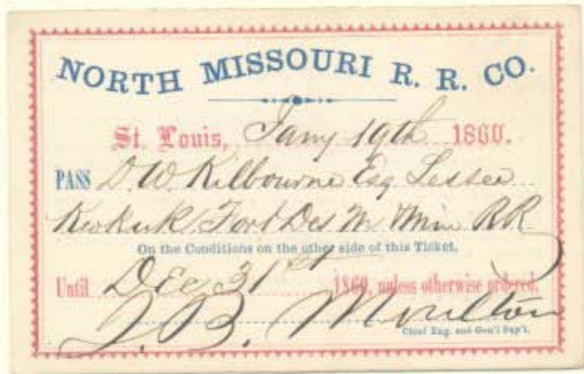 NORTH MISSOURI R. R. CO.
St. Louis, Jany 19th 1860.
PASS D. W. Kilbourne Esq Lessee
Keokuk Fort Des M & Min RR
On the Conditions on the other side of this Ticket,
Until Dec 31st 1860, unless otherwise ordered.
J. B. Moulton
Chief Eng. and Gen'l Sup't.